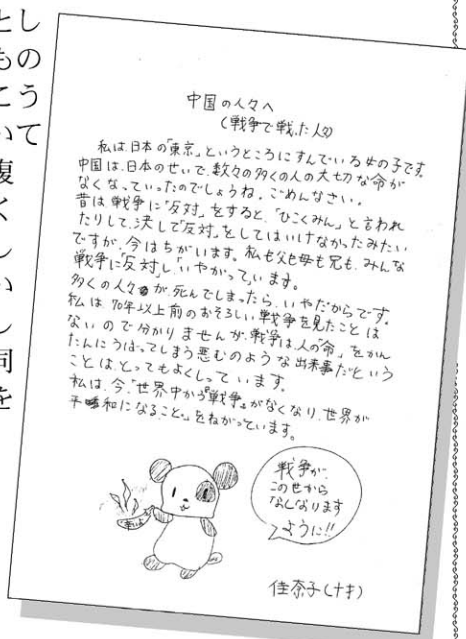 しのうて
中国の人々へ
(戦争で戦った人々)
私は、日本の「東京」というところにすんでいる女の子です。
中国は、日本のせいで、数々の多くの人の大切な命が
なくなっていったのでしょうね。ごめんなさい。
昔は戦争に「反対」をすると、「ひこくみん」と言われ
たりして、決して「反対」をしてはいけなかったみたい
ですが、今はちがいます。私も父も母も兄も、みんな
戦争に「反対」し、いやがっています。
多くの人々が死んでしまったら、いやだからです。
私は、70年以上前のおそろしい戦争を見たことは
ないので分かりませんが、戦争は、人の「命」を、かん
たんにうばってしまう悪むのような出来事だという
ことは、とってもよくしっています。
私は、今、「世界中から『戦争』がなくなり、世界が
平和になること。」をねがっています。
戦争が、
この世から
なくなります
ように!!
佳奈子(ナキ)